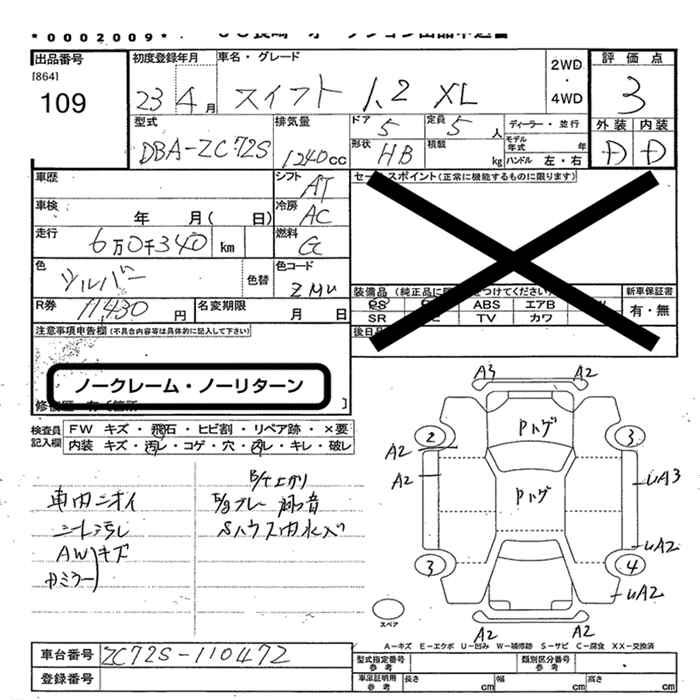 *0002009*
出品番号
[864]
109
初度登録年月
23年4月
車名・グレード
スイフト 1.2 XL
2WD
・
4WD
評価点
3
型式
DBA-ZC72S
排気量
1240cc
ドア
5
定員
5人
ディーラー・並行
形状
HB
積載
kg
モデル年式
年
ハンドル 左・右
外装 内装
D D
車歴
シフト
AT
セールスポイント(正常に機能するものに限ります)
車検
年 月( 日)
冷房
AC
走行
6万0千340 km
燃料
G
色
シルバー
色替
色コード
ZMU
R券
11430円
名変期限
月 日
装備品
新車保証書
有・無
PS
ABS エアB
SR
TV カワ
後日
注意事項申告欄(不具合内容等は具体的に記入して下さい)
ノークレーム・ノーリターン
検査員
記入欄
FW キズ・飛石・ヒビ割・リペア跡・×要
内装 キズ・汚レ・コゲ・穴・凶レ・キレ・破レ
車内ニオイ
シート汚レ
AW キズ
カミラー
A3 A2
Pハゲ
2 3
A2
A2
Pハゲ
UA3
UA2
3 4
UA2
A2 A2
スペア
A-キズ E-エクボ U-凹み W-補修跡 S-サビ C-腐食 XX-交換済
車台番号
ZC72S-110472
登録番号
型式指定番号
参考
類別区分番号
参考
車庫証明用
参考
長さ cm
幅 cm
高さ cm